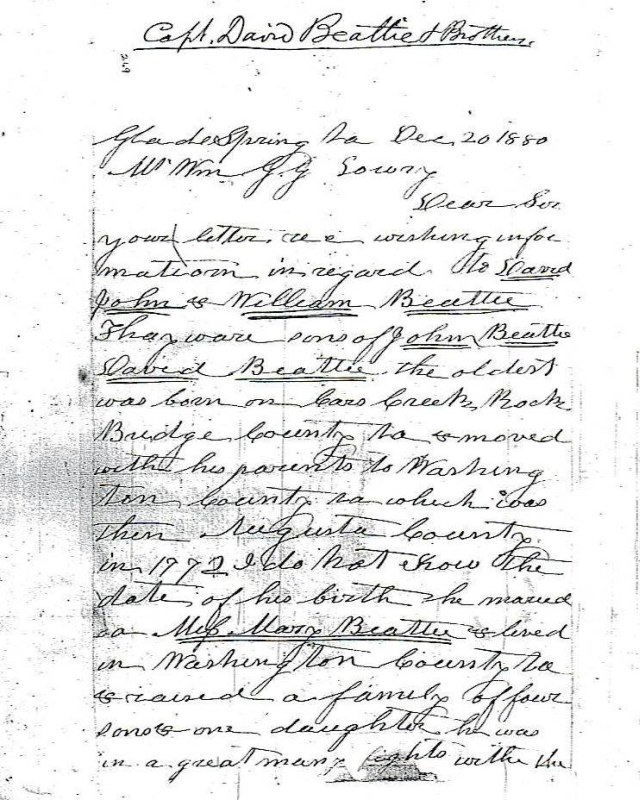 Capt. David Beattie & Brothers.
249
Glade Spring Va Dec 20 1880
Mr Wm G. G Lowry
Dear Sir
your letter rec wishing infor
mation in regard to David
John & William Beattie
Thay ware sons of John Beattie
David Beattie the oldest
was born on Cars Creek, Rock
Bridge County Va & moved
with his parents to Washing
ton County Va which was
then Augusta County
in 1772 I do not know the
date of his birth he maried
a Miss Mary Beattie & lived
in Washington County Va
& raised a family of four
sons & one daughter he was
in a great many fights with the